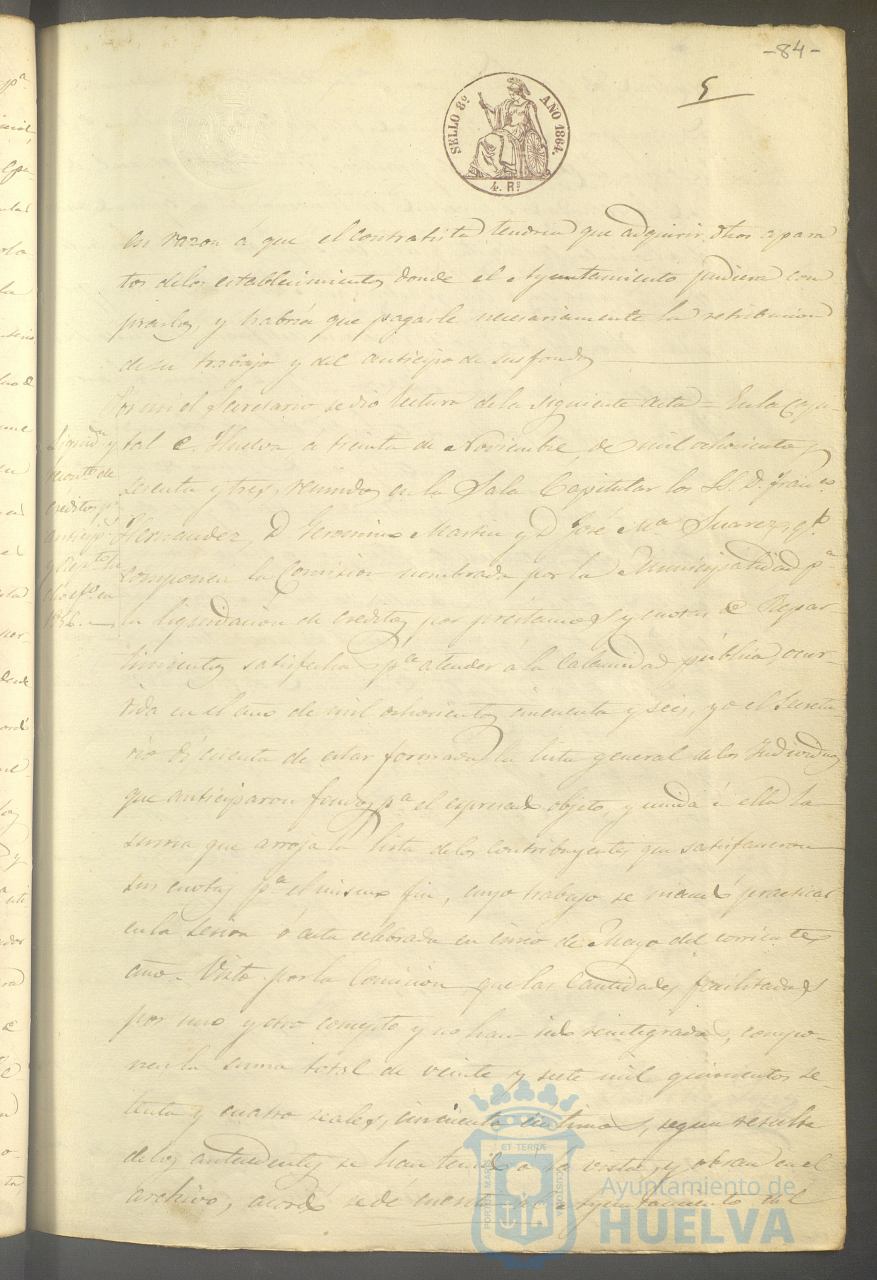 -84-
5
SELLO 8º AÑO 1864.
4. Rˢ
en razon á que el contratista tendria que adquirir dhos apara
tos de los establecimientos donde el Ayuntamiento pudiera com
prarlos, y habria que pagarle necesariamente la retribucion
de su trabajo y del anticipo de sus fondos
Por mi el Secretario se dió lectura de la siguiente acta - En la Capi-
tal de Huelva, á treinta de Noviembre, de mil ochocientos
sesenta y tres, reunidos en la Sala Capitular los S.S. D. Franᶜᵒ
Hernandez, D Geronimo Martin y D José Mª Suarez, qᵉ
componen la Comision nombrada por la Municipalidad pª
la liquidacion de créditos, por préstamos y cuotas de Repar-
timientos satisfechas pª atender á la calamidad pública, ocur-
rida en el año de mil ochocientos cincuenta y seis, yo el Secreta-
rio dí cuenta de estar formada la lista general de los Individuos
que anticiparon fondos pª el espresado objeto, y unida á ella la
suma que arroja la lista de los contribuyentes que satisfacieron
sus cuotas pª el mismo fin, cuyo trabajo se mandó practicar
en la sesion ó acta celebrada en cinco de Mayo del corriente
año. Visto por la Comision que las Cantidades facilitadas
por uno y otro concepto y no han sido reintegradas, compo-
nen la suma total de veinte y siete mil quinientos se-
tenta y cuatro reales, cincuenta centimos, segun resulta
de los antecedentes se han tenido á la vista, y obran en el
archivo, acordó se dé cuenta al Ayuntamiento del
Liquidⁿ y
de
créditos pʳ
anticipᵒ
y
en
1856.
PORTUS MARIS ET TERRÆ CUSTODIA
Ayuntamiento de
HUELVA